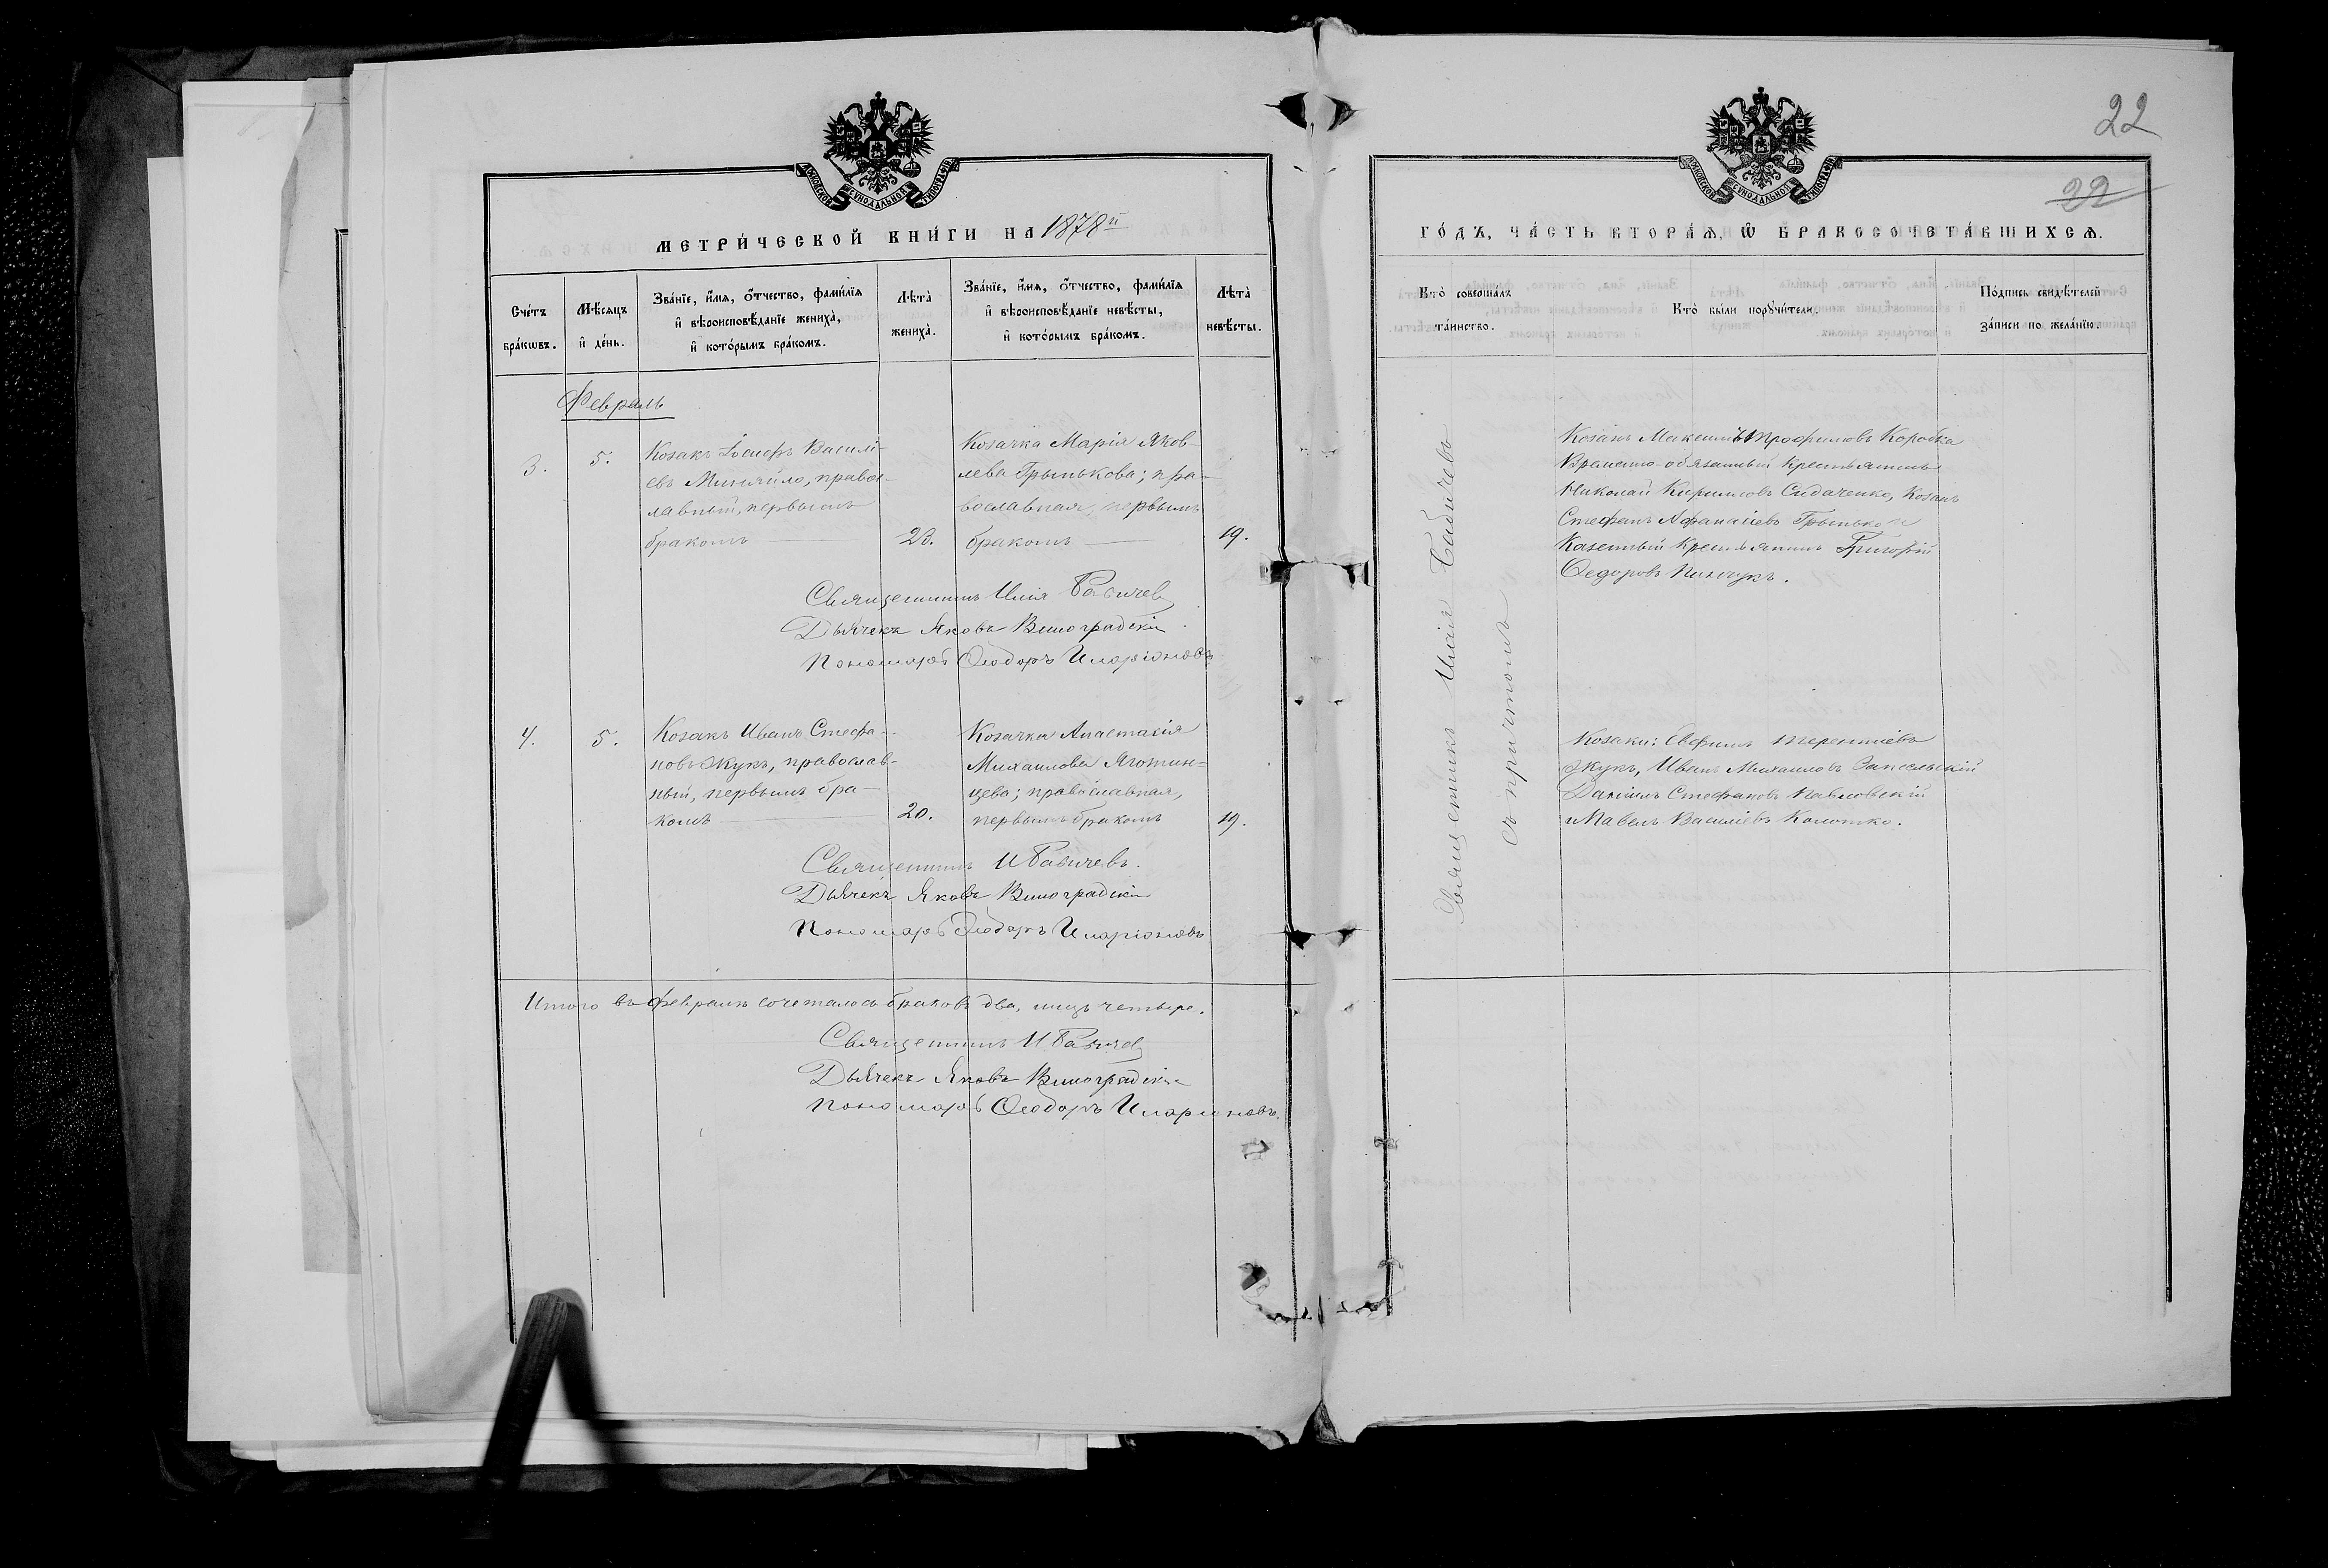 МОСКОВСКОЙ СѴНОДАЛЬНОЙ ТИПОГРАФІИ
МЕТРИ́ЧЕСКОЙ КНИ́ГИ НА 1878й
Сче́тъ бра́кѡвъ.
Мѣ́сяцъ и҆ де́нь.
Зва́нїе, и҆́мя, ѻ҆́тчество, фами́лїя
и҆ вѣроисповѣ́данїе жениха̀,
и҆ кото́рымъ бра́комъ.
Лѣта̀ жениха̀.
Зва́нїе, и҆́мя, ѻ҆́тчество, фами́лїя
и҆ вѣроисповѣ́данїе невѣ́сты,
и҆ кото́рымъ бра́комъ.
Лѣта̀ невѣ́сты.
Февраль
3.
5.
Козакъ Іосифъ Василі-
евъ Миняйло, правос-
лавный, первымъ
бракомъ
23.
Козачка Марія Яков-
лева Грынькова; пра-
вославная, первымъ
бракомъ
19.
Священникъ Илія Бабичев
Дьячекъ Яковъ Виноградскій
Пономарь Ѳеодоръ Иларіоновъ
4.
5.
Козакъ Иванъ Стефа-
новъ Жукъ, православ-
ный, первымъ бра-
комъ
20.
Козачка Анастасія
Михаилова Яготин-
цева; православная,
первымъ бракомъ
19.
Священникъ И Бабичевъ.
Дьячекъ Яковъ Виноградскій
Пономарь Ѳеодоръ Иларіоновъ
Итого въ Февралѣ сочеталось браковъ два, лицъ четыре.
Священникъ И Бабичев
Дьячекъ Яковъ Виноградскій
Пономарь Ѳеодоръ Иларионовъ.
22
22
МОСКОВСКОЙ СѴНОДАЛЬНОЙ ТИПОГРАФІИ
ГО́ДЪ, ЧА́СТЬ ВТОРА́Я, Ѡ҆ БРАКОСОЧЕТА́ВШИХСЯ.
Кто̀ соверша́лъ
та́инство.
Кто̀ бы́ли порꙋчи́тели.
По́дпись свидѣ́телей
за́писи по жела́нїю.
Священникъ Илія Бабичевъ
съ причтомъ
Козакъ Максимъ Трофимовъ Коробка
Временно-обязанный Крестьянинъ
Николай Кирилловъ Сидаченко, Козакъ
Стефанъ Афанасіевъ Грынько и
Казенный Крестьянинъ Григорій
Ѳедоровъ Пинчукъ.
Козаки: Евфимъ Терентіевъ
Жукъ, Иванъ Михаиловъ Запсельскій
Даніилъ Стефановъ Павловскій
и Павелъ Василіевъ Колотко.